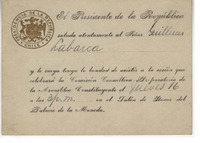 El Presidente de la República
saluda atentamente al Señor Guillermo
Labarca
y le ruega tenga la bondad de asistir a la sesión que
celebrará la Comisión Consultiva Preparatoria de
la Asamblea Constituyente el jueves 16
a las 3 p.m. en el Salón de Honor del
Palacio de la Moneda.